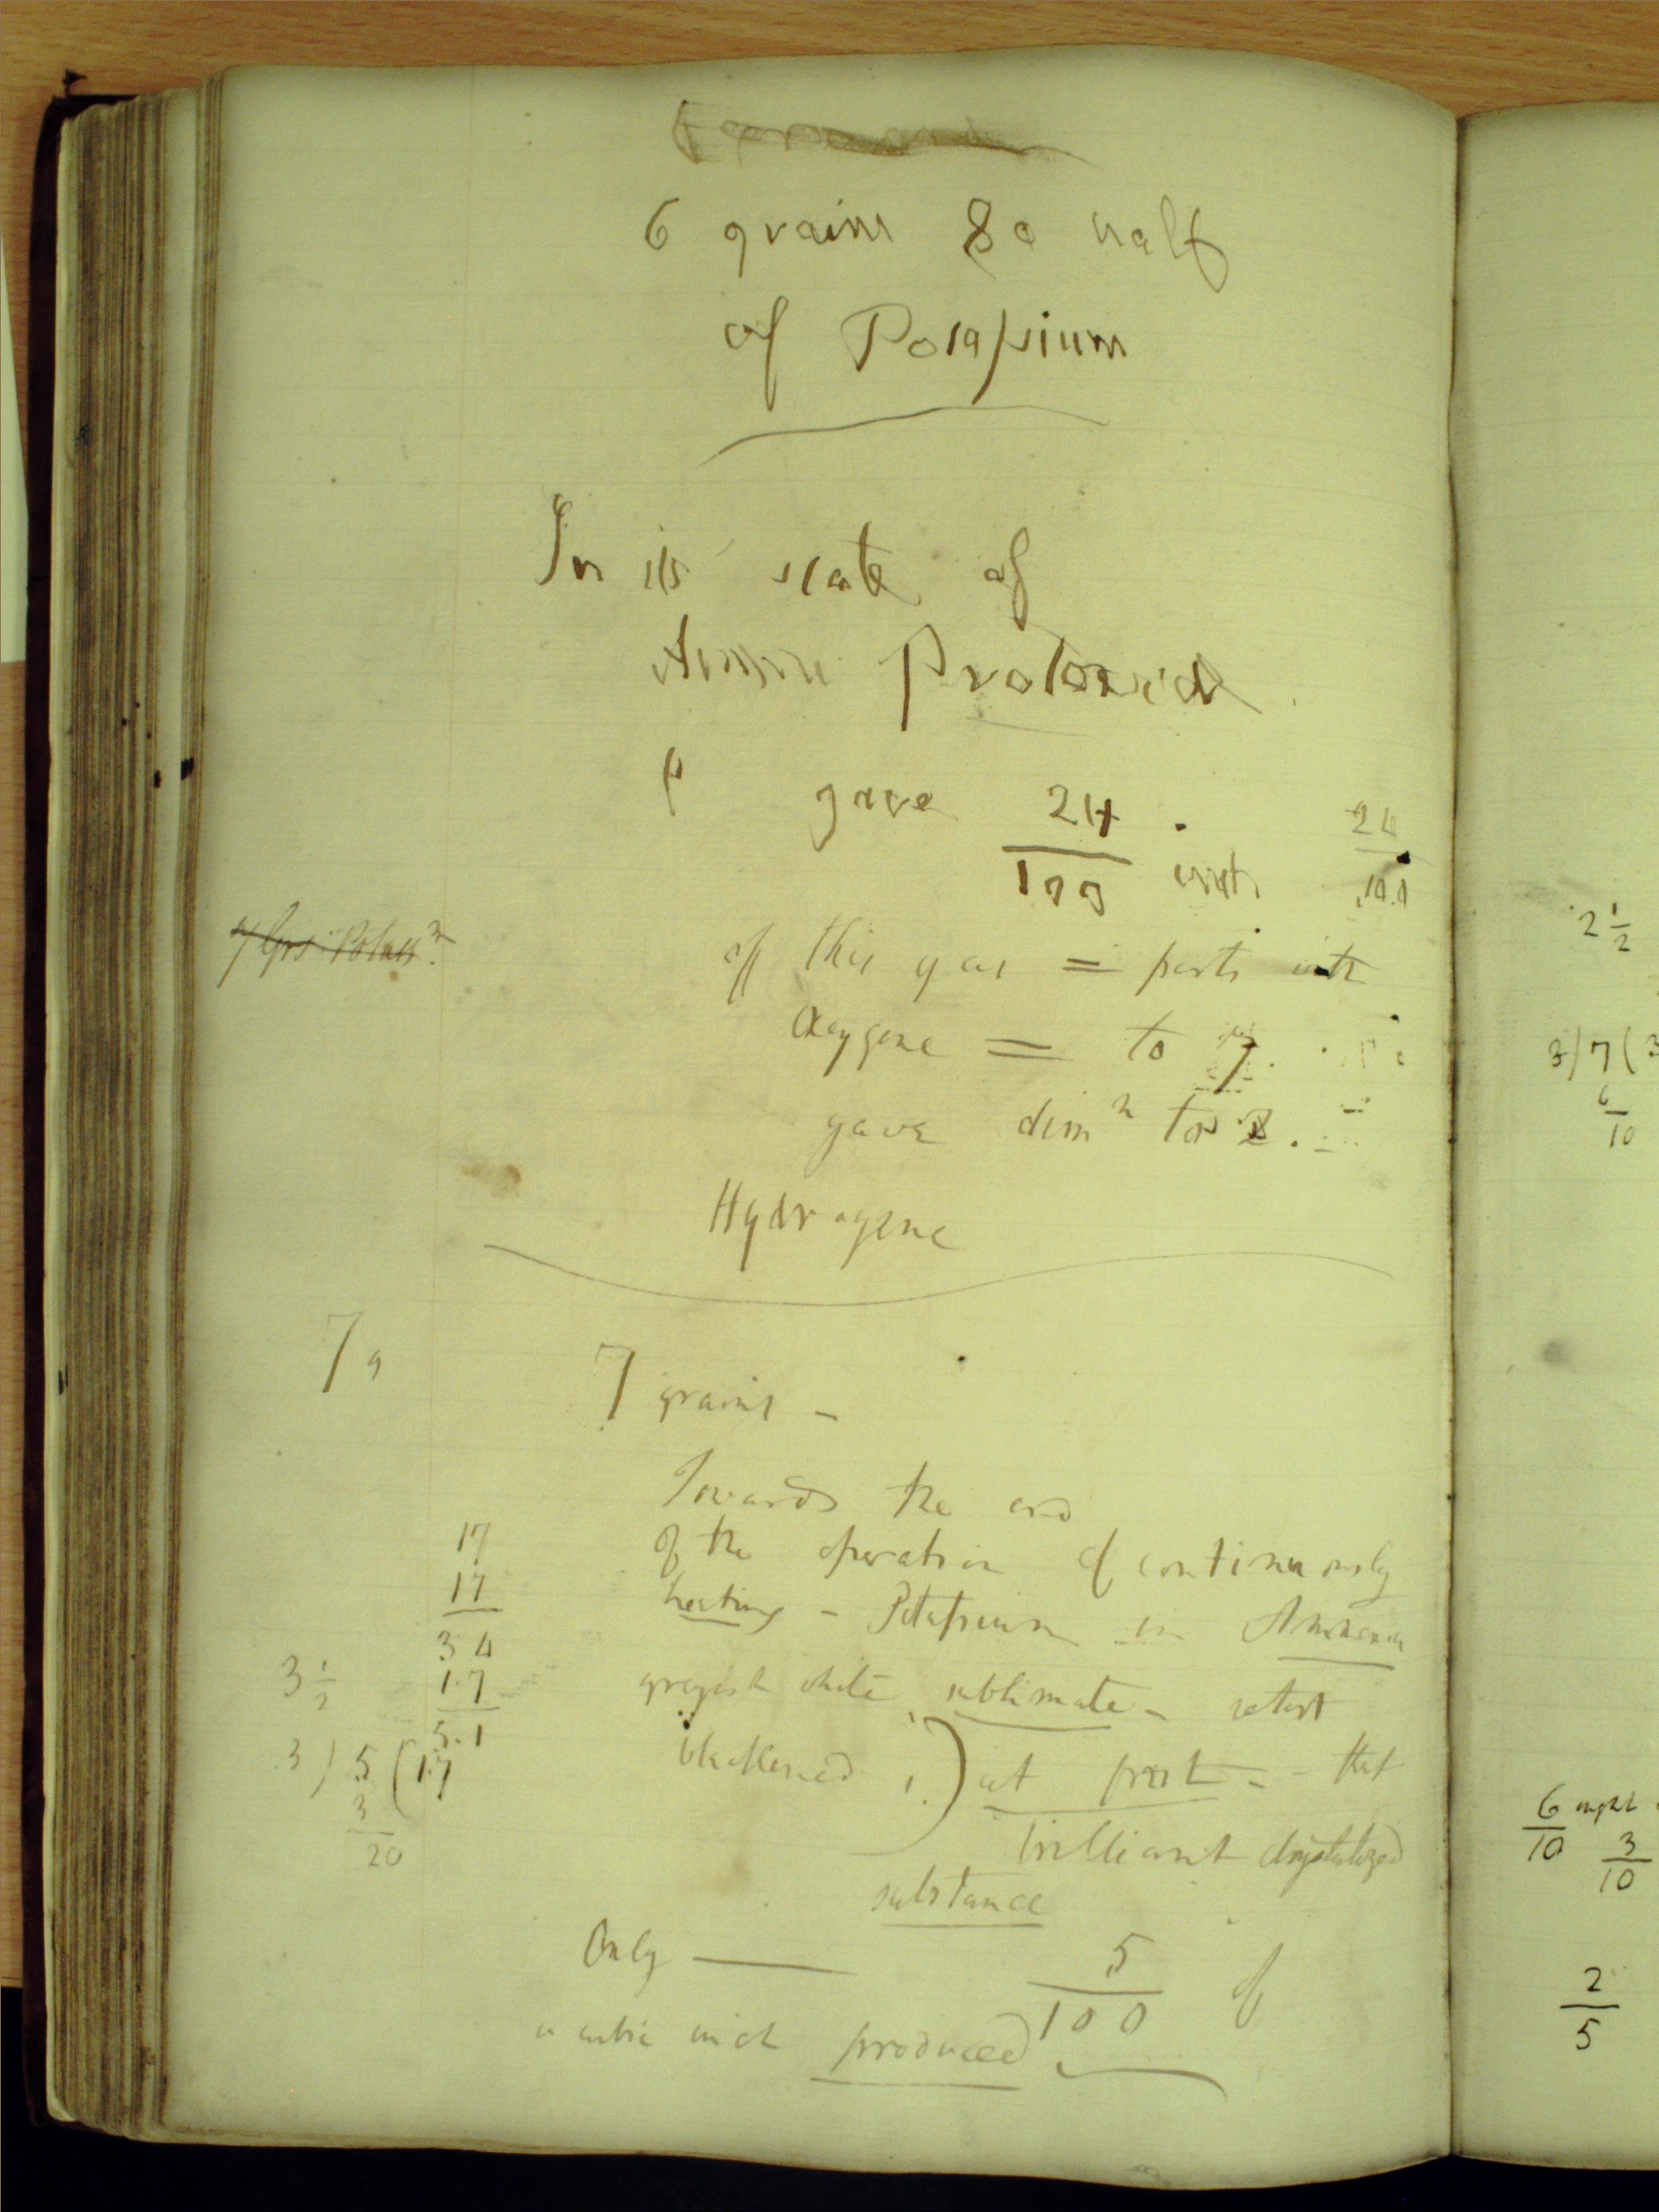 6 grains & a half
of Potassium
In its state of
Protoxid
gave 24/100
24/100
7 Grs. Potass^m.
of this gas = parts with
Oxygene = to 7.
gave dim^n to 2.
Hydrogene
7 g
7 grains -
Towards the end
of the operation of continuously
heating - Potassium in Ammonia
greyish white sublimate - retort
blackened ) at first - that
brilliant chrystalized
substance
Only — 5/100 of
a cubic inch produced
17
17
34
17
5.1
3 1/2
3 ) 5 ( 1.7
3
20
2 1/2
3 ) 7 ( 3
6
10
6/10 might
3/10
2/5